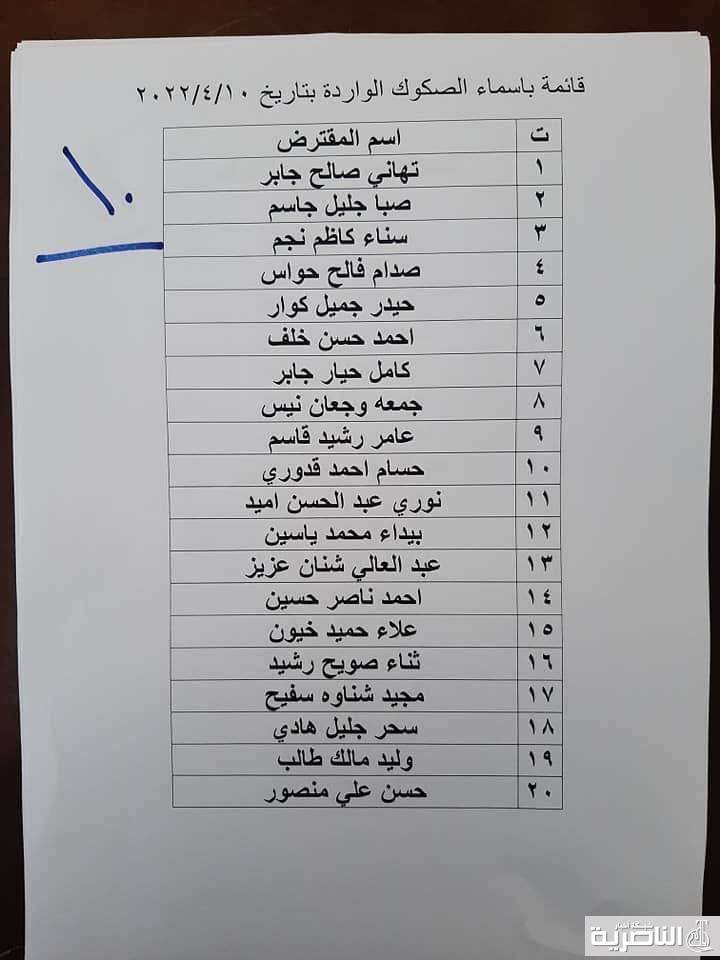 قائمة باسماء الصكوك الواردة بتاريخ ٢٠٢٢/٤/١٠
١٠
ت اسم المقترض
١ تهاني صالح جابر
٢ صبا جليل جاسم
٣ سناء كاظم نجم
٤ صدام فالح حواس
٥ حيدر جميل كوار
٦ احمد حسن خلف
٧ كامل حيار جابر
٨ جمعه وجعان نيس
٩ عامر رشيد قاسم
١٠ حسام احمد قدوري
١١ نوري عبد الحسن اميد
١٢ بيداء محمد ياسين
١٣ عبد العالي شنان عزيز
١٤ احمد ناصر حسين
١٥ علاء حميد خيون
١٦ ثناء صويح رشيد
١٧ مجيد شناوه سفيح
١٨ سحر جليل هادي
١٩ وليد مالك طالب
٢٠ حسن علي منصور
شبكة اخبار
الناصرية